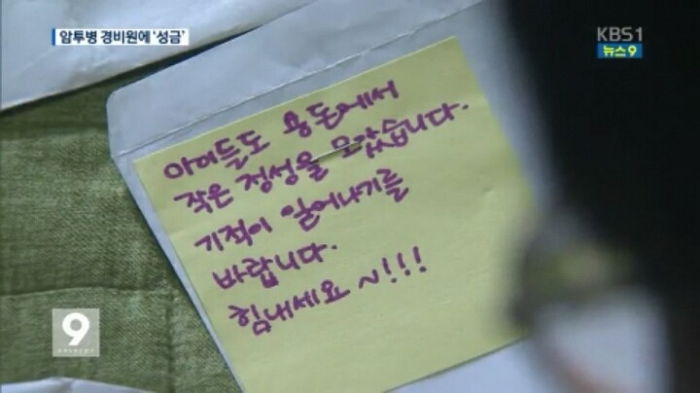 암투병 경비원에 '성금'
KBS1
뉴스9
아이들도 용돈에서
작은 정성을 모았습니다.
기적이 일어나기를
바랍니다.
힘내세요 ~!!!
9